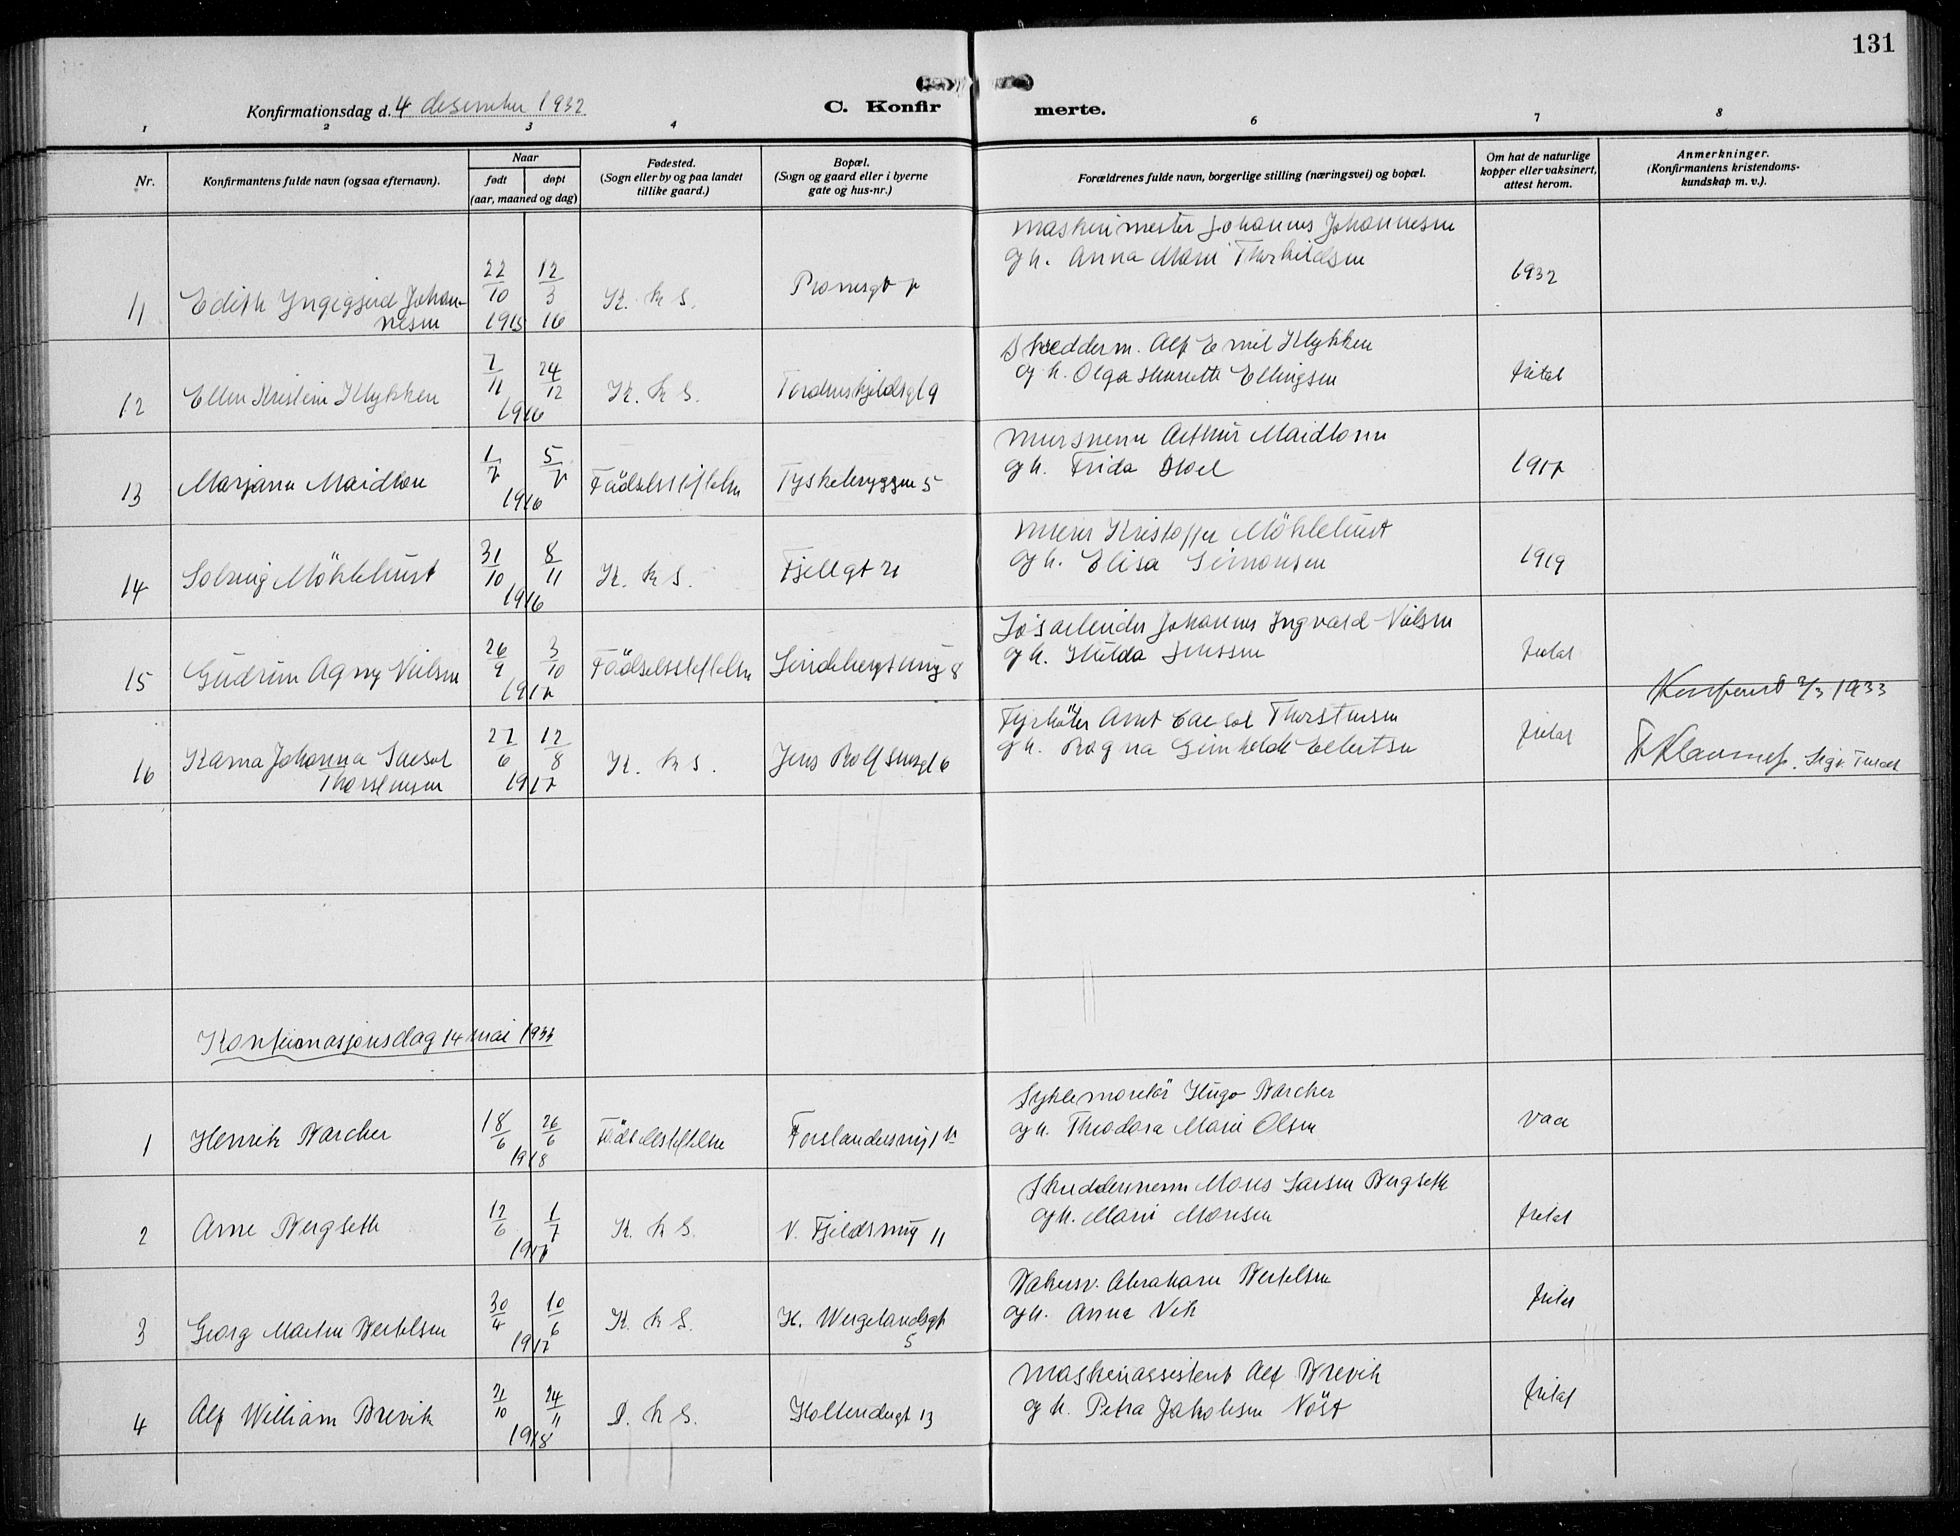 131
Konfirmationsdag d. 4 desember 1932
C. Konfirmerte.
1 2 3 4 6 7 8
Nr.
Konfirmantens fulde navn (ogsaa efternavn).
Naar
født
døpt
(aar, maaned og dag)
Fødested.
(Sogn eller by og paa landet
tillike gaard.)
Bopæl.
(Sogn og gaard eller i byerne
gate og hus-nr.)
Forældrenes fulde navn, borgerlige stilling (næringsvei) og bopæl.
Om hat de naturlige
kopper eller vaksinert,
attest herom.
Anmerkninger.
(Konfirmantens kristendoms-
kundskap m. v.).
11 Edith Yngigjerd Johan-
nesen
22/10 1915 12/3 16
K. k S.
Maskinmester Johannes Johannesen
og h. Anna Marie Thorkildsen
1932
12 Ellen Kristine Klykken
7/11 24/12 1916
K. k S.
Tordenskjoldsgt 9
Skredderm. Alf Emil Klykken
og h. Olga Henriette Ellingsen
fritat
13 Marjann Maidlow
1/7 5/7 1916
Fødselsstiftelsen
Tyskebryggen 5
Mursvenn Arthur Maidlow
og h. Frida Skoel
1917
14 Solveig Möhlehust
31/10 8/11 1916
K. k S.
Fjellgt 21
Murer Kristoffer Möhlehust
og h. Elisa Simonsen
1919
15 Gudrun Agny Nielsen
26/9 3/10 1917
Fødselsstiftelsen
Lindebergsmug 8
Løsarbeider Johannes Ingvard Nielsen
og h. Hulda Jenssen
fritat
Konfirmert 2/3 1933
16 Karna Johanna Saesol
Thorstensen
27/6 12/8 1917
K. k S.
Jens Rolfsensgt 6
Fyrbøter Arnt Saesol Thorstensen
og h. Ragna Gunhilde Ellertsen
fritat
Konfirmasjonsdag 14 mai 1933
1 Henrik Barcher
18/6 26/6 1918
Fødselsstiftelsen
Sykkelmontør Hugo Barcher
og h. Theodora Marie Olsen
vacc
2 Arne Bergseth
12/6 1/7 1917
K. k S.
V. Fjeldsmug 11
Skreddersvenn Mons Larsen Bergseth
og h. Marie Monsen
fritat
3 Georg Martin Bertelsen
30/4 10/6 1917
K. k S.
H. Wergelandsgt
5
Bakersv. Abraham Bertelsen
og h. Anna Vik
fritat
4 Alf William Brevik
21/10 24/11 1918
D. k S.
Hollendergt 13
Maskinassistent Alf Brevik
og h. Petra Jakobsen Nöst
fritat